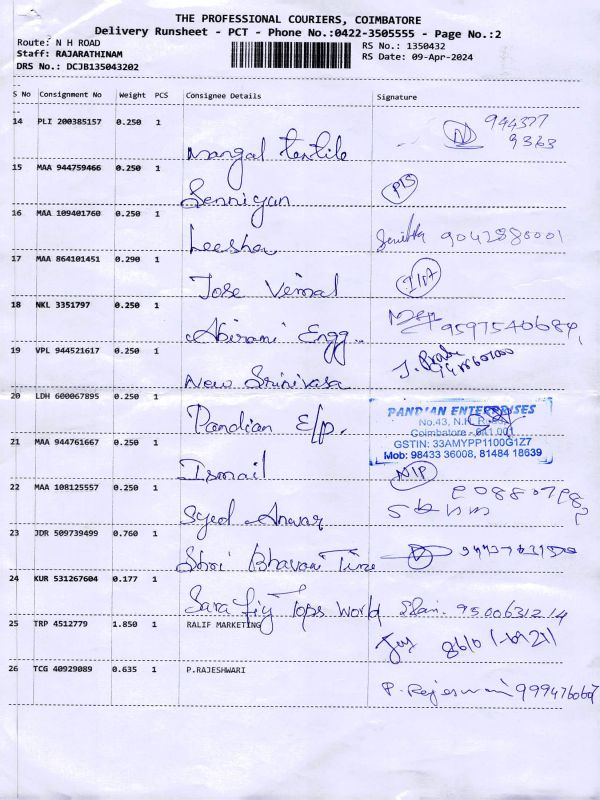 THE PROFESSIONAL COURIERS, COIMBATORE
Delivery Runsheet - PCT - Phone No.:0422-3505555 - Page No.:2
Route: N H ROAD
RS No.: 1350432
Staff: RAJARATHINAM
RS Date: 09-Apr-2024
DRS No.: DCJB135043202
S No Consignment No Weight PCS Consignee Details Signature
14 PLI 200385157 0.250 1
944377
9363
Mangal textile
15 MAA 944759466 0.250 1
Senniyan
16 MAA 109401760 0.250 1
Leesha 9042880001
17 MAA 864101451 0.290 1
Jose Vemal
18 NKL 3351797 0.250 1
Abirami Engg..
19 VPL 944521617 0.250 1
J. Prabu
New Srinivasa
20 LDH 600067895 0.250 1
PANDIAN ENTERPRISES
No.43, N.H. Road,
Coimbatore - 641 001
GSTIN: 33AMYPP1100G1Z7
Mob: 98433 36008, 81484 18639
Pandian E/p.
21 MAA 944761667 0.250 1
Ismail
22 MAA 108125557 0.250 1
Syed Anwar
23 JDR 509739499 0.760 1
Shri Bhavan Time
24 KUR 531267604 0.177 1
Sara Fiy Tops World 9500631214
25 TRP 4512779 1.850 1 RALIF MARKETING
26 TCG 40929089 0.635 1 P.RAJESHWARI
P. Rajeswari